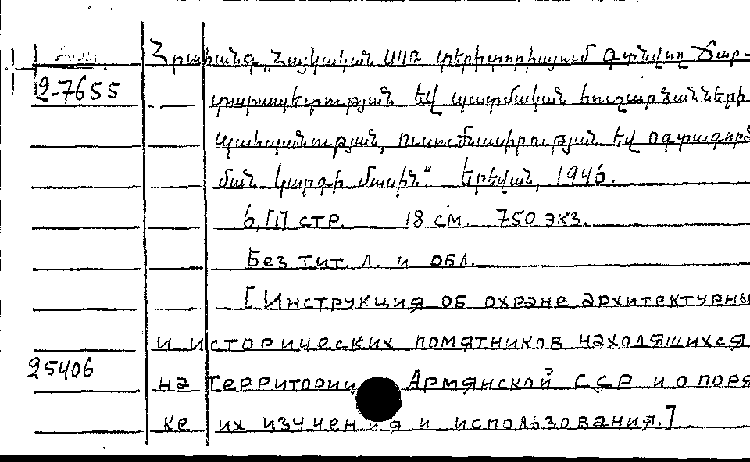 Հրահանգ „Հայկական ՍՍՌ տերիտորիայում գտնվող ճար-
2-7655
տարապետության եվ պատմական հուշարձանների
պահպանության, ուսումնասիրության եվ օգտագործ
ման կարգի մասին“. Երեվան, 1946.
6,[1] стр. 18 см. 750 экз.
Без тит. л. и обл.
[Инструкция об охране архитектурны
и исторических помятников находящихся
25406
на территории Армянской ССР и о поря
ке их изучения и использования.]